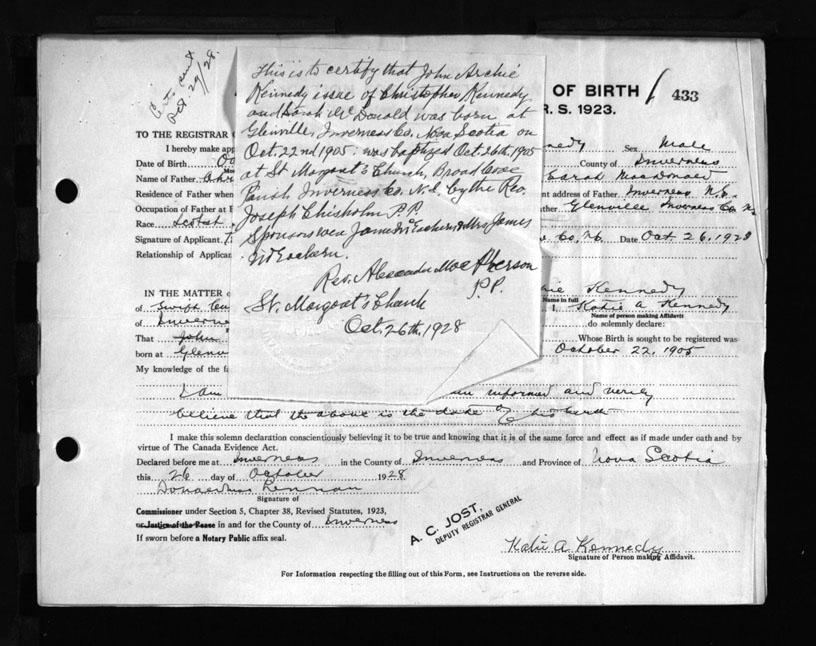 Certs sent
Oct 29/28.
This is to certify that John Archie
Kennedy issue of Christopher Kennedy
and Sarah McDonald was born at
Glenville, Inverness Co. Nova Scotia on
Oct. 22nd 1905: was baptized Oct. 26th, 1905
at St Margaret's Church, Broad Cove
Parish Inverness Co. N.S. by the Rev.
Joseph Chisholm P.P.
Sponsors were James McEachern & Mrs James
McEachern.
Rev. Alexander MacPherson
P.P.
St. Margaret's Church
Oct. 26th, 1928
OF BIRTH 433
R. S. 1923.
TO THE REGISTRAR
I hereby make app nedy Sex Male
Date of Birth Oc County of Inverness
Name of Father Chr Sarah MacDonald
Residence of Father when nt address of Father Inverness N.S.
Occupation of Father at B ather Glenville Inverness Co. N.S.
Race Scotch
Signature of Applicant. Co. N.S. Date Oct 26, 1928
Relationship of Applican
IN THE MATTER o hie Kennedy
Name in full
of I, Katie A Kennedy
Name of person making Affidavit
of Inverne do solemnly declare:
That John Whose Birth is sought to be registered was
born at Glenv October 22, 1905
My knowledge of the fa
I am en informed and verily
believe that the above is the date of his birth
I make this solemn declaration conscientiously believing it to be true and knowing that it is of the same force and effect as if made under oath and by
virtue of The Canada Evidence Act.
Declared before me at Inverness in the County of Inverness and Province of Nova Scotia
this 26 day of October 1928
Signature of
Commissioner under Section 5, Chapter 38, Revised Statutes, 1923,
or Justice of the Peace in and for the County of Inverness
If sworn before a Notary Public affix seal.
A. C. JOST.
DEPUTY REGISTRAR GENERAL
Katie A Kennedy
Signature of Person making Affidavit.
For Information respecting the filling out of this Form, see Instructions on the reverse side.